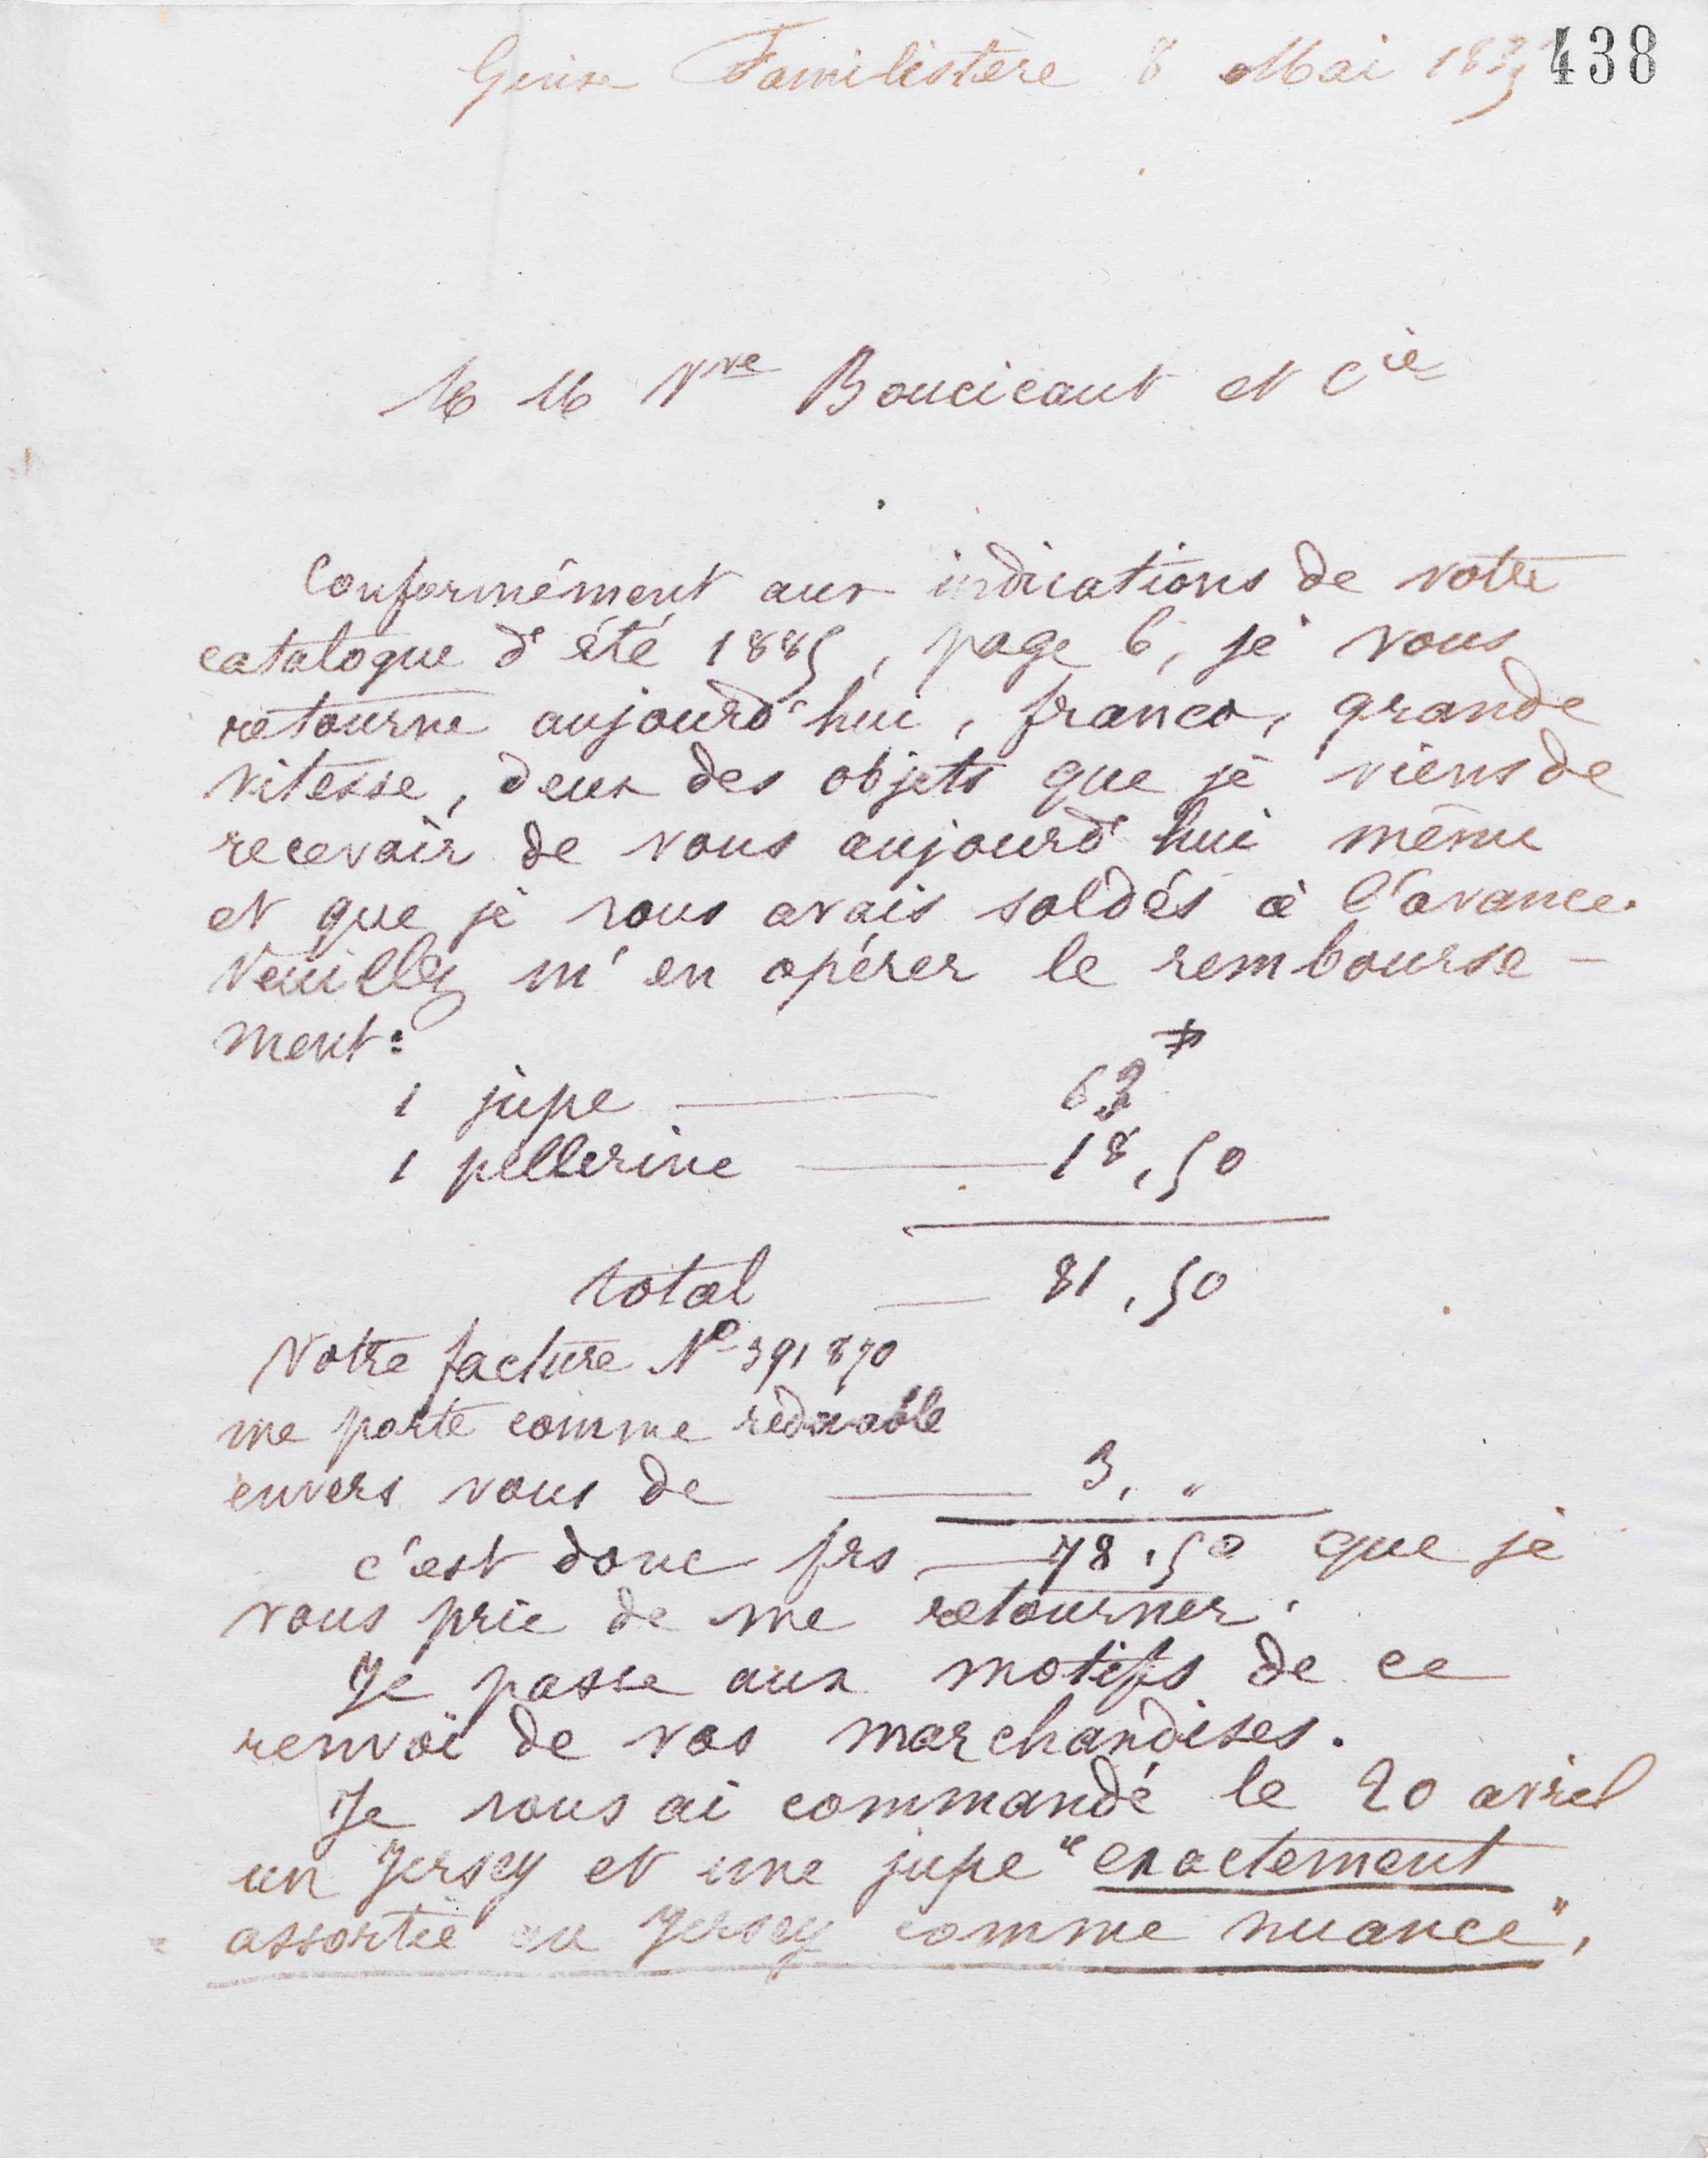 Guise Familistère 8 Mai 1885 438
MM Vve Boucicaut et Cie
Conformément aux indications de votre
catalogue d'été 1885, page 6, je vous
retourne aujourd'hui, franco, grande
vitesse, deux des objets que je viens de
recevoir de vous aujourd'hui même
et que je vous avais soldés à l'avance.
Veuillez m'en opérer le rembourse-
ment:
1 jupe — 63
1 pellerine — 18,50
total — 81,50
Votre facture No 391870
me porte comme redevable
envers vous de — 3, "
c'est donc frs — 78,50 que je
vous prie de me retourner.
Je passe aux motifs de ce
renvoi de vos marchandises.
Je vous ai commandé le 20 avril
un Jersey et une jupe "exactement
assortie au Jersey comme nuance",